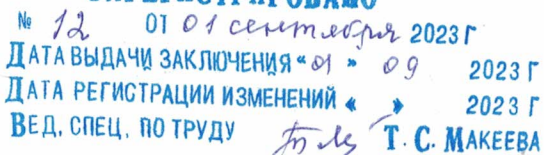 ЗАРЕГИСТРИРОВАНО
№ 12 ОТ 01 сентября 2023 Г
ДАТА ВЫДАЧИ ЗАКЛЮЧЕНИЯ « 01 » 09 2023 Г
ДАТА РЕГИСТРАЦИИ ИЗМЕНЕНИЙ « » 2023 Г
ВЕД. СПЕЦ. ПО ТРУДУ Т. С. МАКЕЕВА